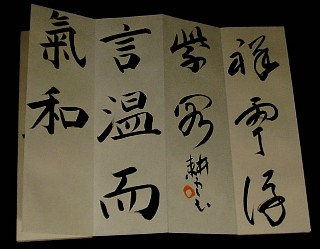 祥雲浮
紫閣
言温而
氣和